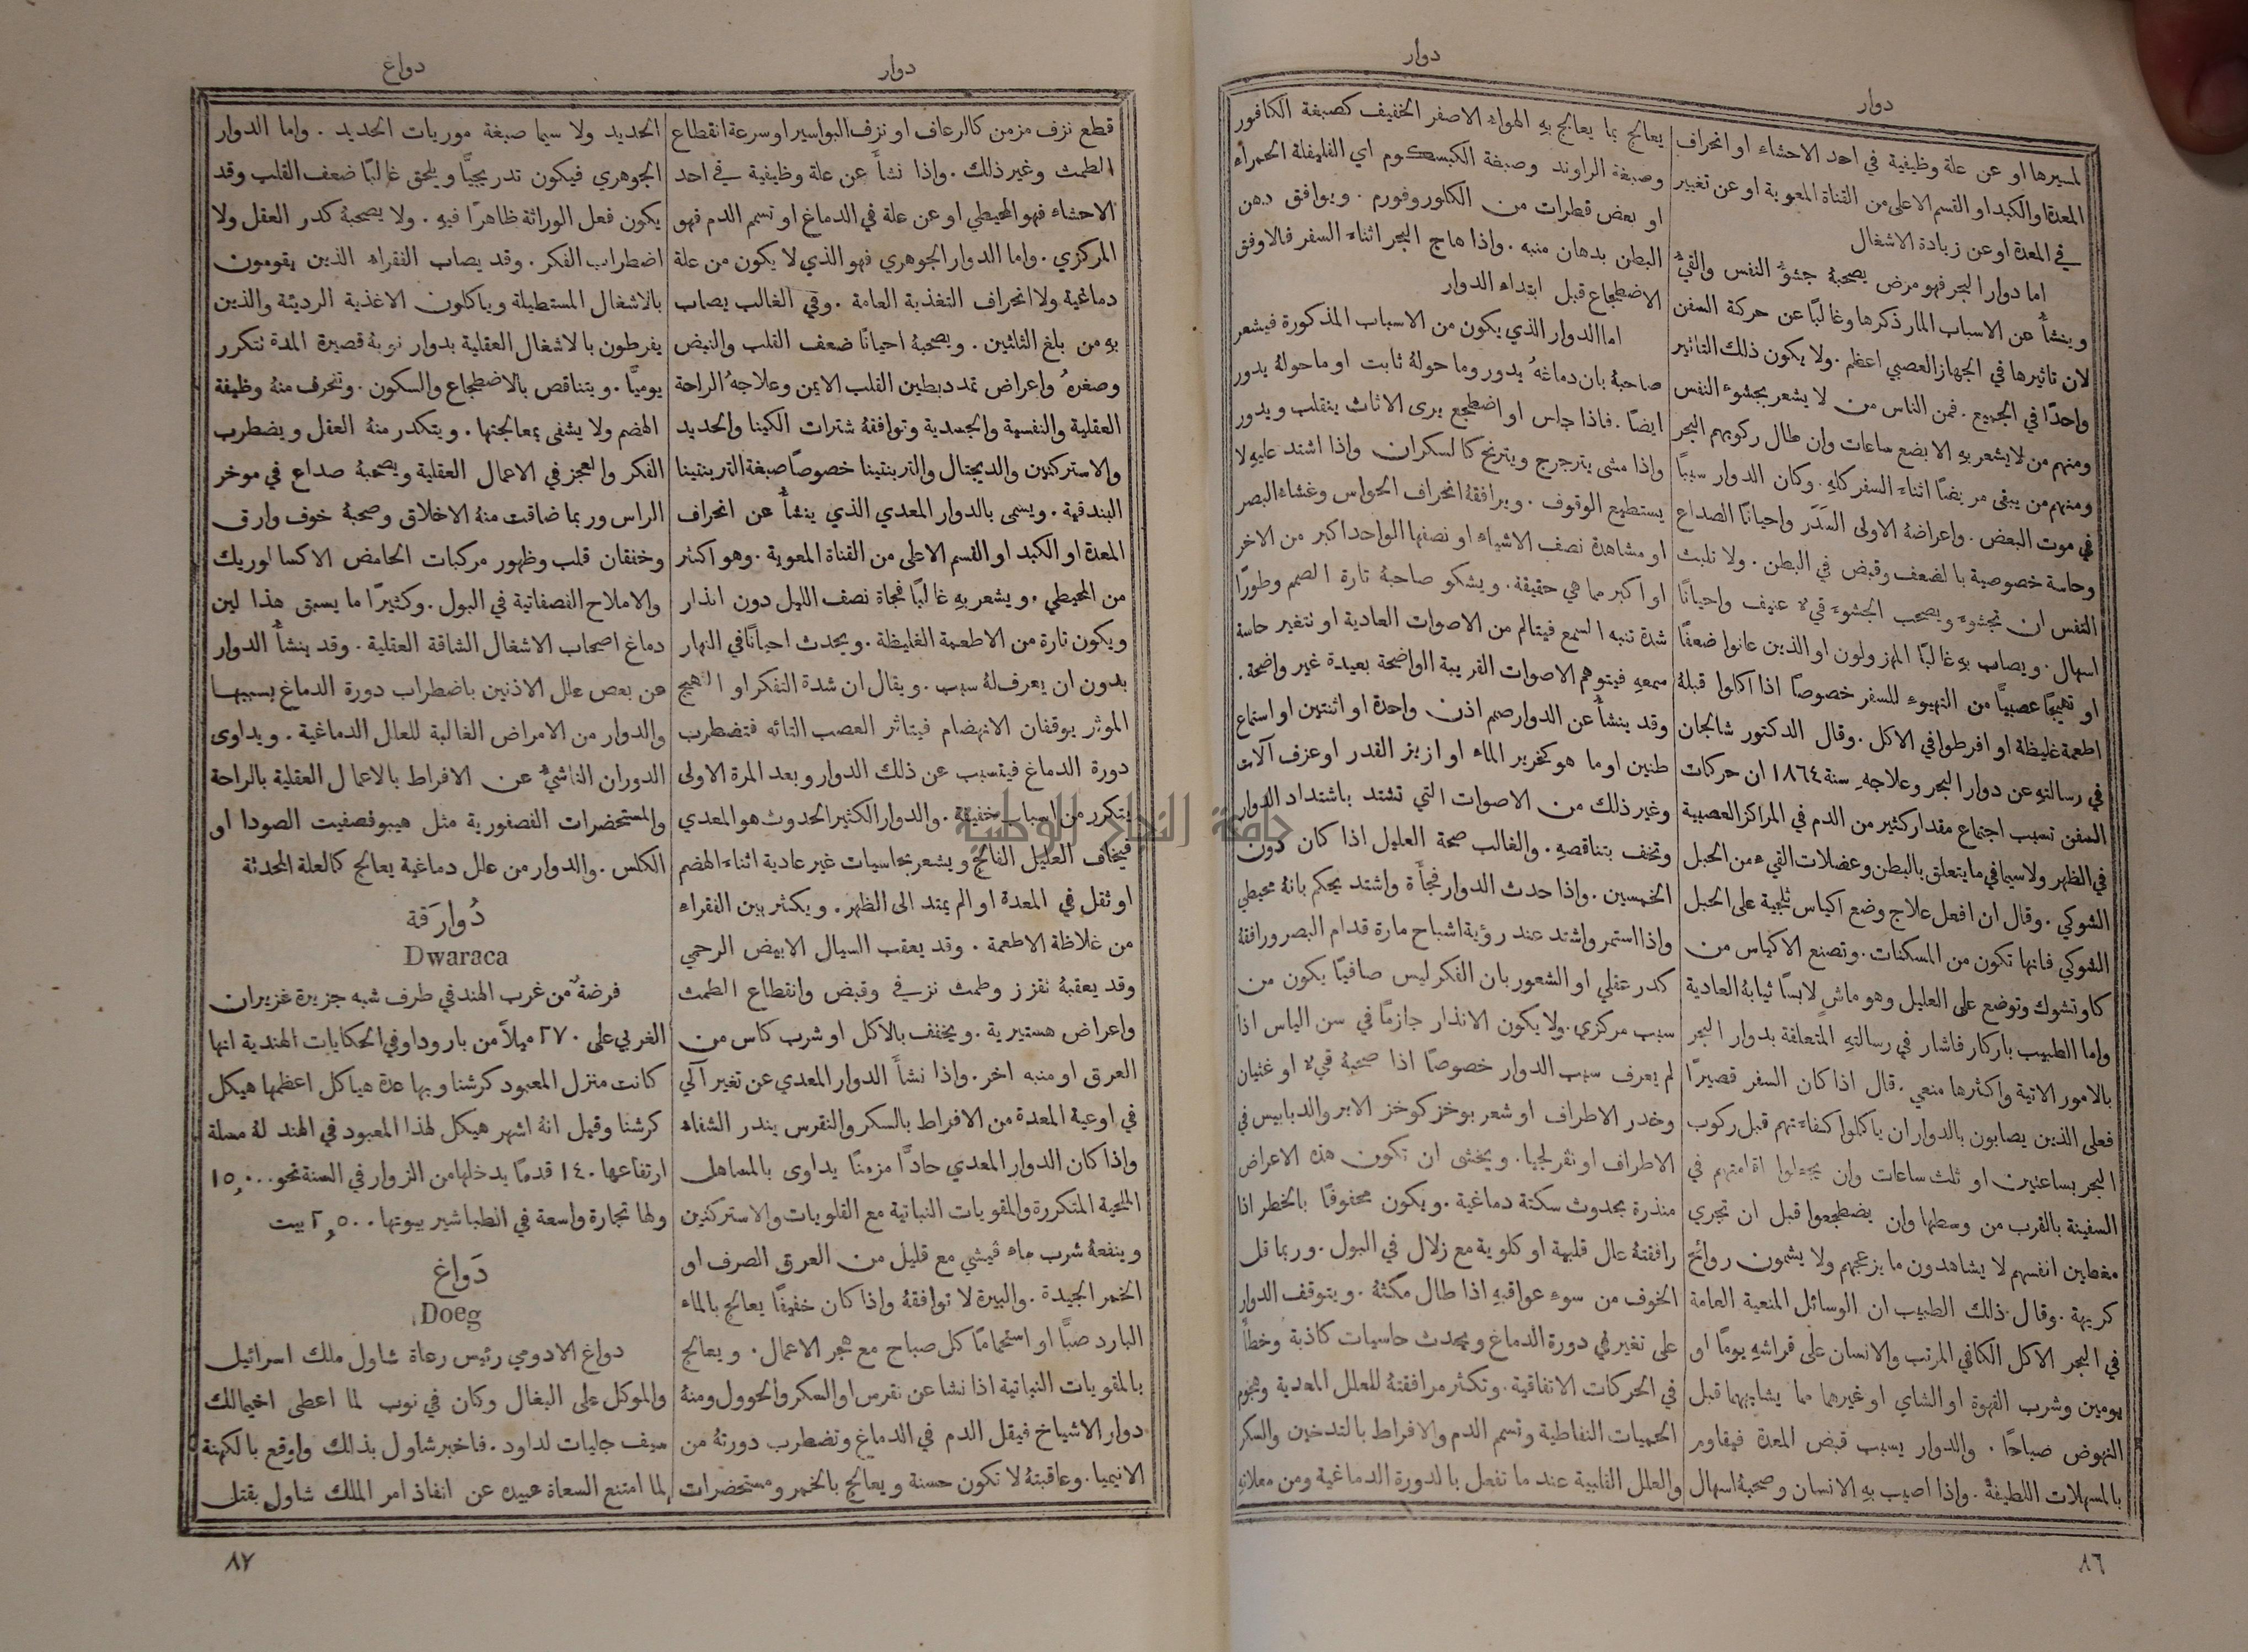 دوار
دوار
لمسيرها او عن علة وظيفية في احد الاحشاء او انحراف
المعدة او الكبد او القسم الاعلى من القناة المعوية او عن تغيير
في المعدة او عن زيادة الاشغال
اما دوار البحر فهو مرض يصحبهُ جشوُّ النفس والقيُّ
وينشأُ عن الاسباب المار ذكرها وغالبًا عن حركة السفن
لان تاثيرها في الجهاز العصبي اعظم . ولا يكون ذلك التاثير
واحدًا في الجميع . فمن الناس من لا يشعر بجشوء النفس
ومنهم من لا يشعر بهِ الا بضع ساعات وان طال ركوبهم البحر
ومنهم من يبقى مريضًا اثناء السفر كلهِ . وكان الدوار سببًا
في موت البعض . واعراضهُ الاولى السَدَر واحيانًا الصداع
وحاسة خصوصية بالضعف وقبض في البطن . ولا تلبث
النفس ان تجشوء ويصحب الجشوء قيء عنيف واحيانًا
اسهال . ويصاب بهِ غالبًا المهزولون او الذين عانوا ضعفًا
او تهيجًا عصبيًّا من التهيوء للسفر خصوصًا اذا اكلوا قبلهُ
اطعمة غليظة او افرطوا في الاكل . وقال الدكتور شابجان
في رسالتهِ عن دوار البحر وعلاجهِ سنة ١٨٦٤ ان حركات
السفن تسبب اجتماع مقدار كثير من الدم في المراكز العصبية
في الظهر ولا سيما في ما يتعلق بالبطن وعضلات القيء من الحبل
الشوكي . وقال ان افعل علاج وضع اكياس ثلجية على الحبل
الشوكي فانها تكون من المسكنات . وتصنع الاكياس من
كاوتشوك وتوضع على العليل وهو ماشٍ لابسًا ثيابهُ العادية
واما الطبيب باركار فاشار في رسالتهِ المتعلقة بدوار البحر
بالامور الاتية واكثرها منعي . قال اذا كان السفر قصيرًا
فعلى الذين يصابون بالدوار ان ياكلوا كفاءتهم قبل ركوب
البحر بساعتين او ثلث ساعات وان يجعلوا اقامتهم في
السفينة بالقرب من وسطها وان يضطجعوا قبل ان تجري
مغطين انفسهم لا يشاهدون ما يزعجهم ولا يشمون روائح
كريهة . وقال ذلك الطبيب ان الوسائل المنعية العامة
في البحر الاكل الكافي المرتب والانسان على فراشهِ يومًا او
يومين وشرب القهوة او الشاي او غيرهما مما يشابههما قبل
النهوض صباحًا . والدوار يسبب قبض المعدة فيقاوم
بالمسهلات اللطيفة . واذا اصيب بهِ الانسان وصحبهُ اسهال
يعالج بما يعالج بهِ الهواء الاصفر الخفيف كصبغة الكافور
وصبغة الراوند وصبغة الكبسكوم اي الفليفلة الحمراء
او بعض قطرات من الكلوروفورم . ويوافق دهن
البطن بدهان منبه . واذا هاج البحر اثناء السفر فالاوفق
الاضطجاع قبل ابتداء الدوار
اما الدوار الذي يكون من الاسباب المذكورة فيشعر
صاحبهُ بان دماغهُ يدور وما حولهُ ثابت او ما حولهُ يدور
ايضًا . فاذا جلس او اضطجع يرى الاثاث ينقلب ويدور
واذا مشى يترجرج ويترنح كالسكران واذا اشتد عليهِ لا
يستطيع الوقوف . ويرافقهُ انحراف الحواس وغشاء البصر
او مشاهدة نصف الاشياء او نصفها الواحد اكبر من الاخر
او اكبر مما هي حقيقة . ويشكو صاحبهُ تارة الصمم وطورًا
شدة تنبه السمع فيتالم من الاصوات العادية او تتغير حاسة
سمعهِ فيتوهم الاصوات القريبة الواضحة بعيدة غير واضحة .
وقد ينشأُ عن الدوار صمم اذن واحدة او اثنتين او استماع
طنين او ما هو كخرير الماء او ازيز القدر او عزف آلات
وغير ذلك من الاصوات التي تشتد باشتداد الدوار
وتخف بتناقصهِ . والغالب صحة العليل اذا كان دون
الخمسين . واذا حدث الدوار فجأَة واشتد يحكم بانهُ محيطي
واذا استمر واشتد عند رؤية اشباح مارة قدام البصر ورافقهُ
كدر عقلي او الشعور بان الفكر ليس صافيًا يكون من
سبب مركزي . ولا يكون الانذار جازمًا في سن الياس اذا
لم يعرف سبب الدوار خصوصًا اذا صحبهُ قيء او غثيان
وخدر الاطراف او شعر بوخز كوخز الابر والدبابيس في
الاطراف او نفرلجيا . ويخشى ان تكون هذه الاعراض
منذرة بحدوث سكتة دماغية . ويكون محفوفًا بالخطر اذا
رافقتهُ علل قلبية او كلوية مع زلال في البول . وربما قل
الخوف من سوء عواقبهِ اذا طال مكثهُ . ويتوقف الدوار
على تغير في دورة الدماغ ويحدث حاسيات كاذبة وخطأً
في الحركات الاتفاقية . وتكثر مرافقتهُ للعلل المعدية وهجوم
الحميات النفاطية وتسمم الدم والافراط بالتدخين والسكر
والعلل القلبية عند ما تفعل بالدورة الدماغية ومن معلاته
٨٦
دوار
دواغ
قطع نزف مزمن كالرعاف او نزف البواسير او سرعة انقطاع
الطمث وغير ذلك . واذا نشأَ عن علة وظيفية في احد
الاحشاء فهو المحيطي او عن علة في الدماغ او تسمم الدم فهو
المركزي . واما الدوار الجوهري فهو الذي لا يكون من علة
دماغية ولا انحراف التغذية العامة . وفي الغالب يصاب
بهِ من بلغ الثلثين . ويصحبهُ احيانًا ضعف القلب والنبض
وصغرهُ واعراض تمدد بطين القلب الايمن وعلاجهُ الراحة
العقلية والنفسية والجسدية وتوافقهُ شترات الكينا والحديد
والاستركنين والديجتال والتربنتينا خصوصًا صبغة التربنتينا
البندقية . ويسمى بالدوار المعدي الذي ينشأُ عن انحراف
المعدة او الكبد او القسم الاعلى من القناة المعوية . وهو اكثر
من المحيطي . ويشعر بهِ غالبًا فجاة نصف الليل دون انذار
ويكون تارة من الاطعمة الغليظة . ويحدث احيانًا في النهار
بدون ان يعرف لهُ سبب . ويقال ان شدة التفكر او التهيج
الموثر يوقفان الانهضام فيتاثر العصب التائه فتضطرب
دورة الدماغ فيتسبب عن ذلك الدوار وبعد المرة الاولى
يتكرر من اسباب خفيفة . والدوار الكثير الحدوث هو المعدي
فيخاف العليل الفالج ويشعر بحاسيات غير عادية اثناء الهضم
او ثقل في المعدة او الم يمتد الى الظهر . ويكثر بين الفقراء
من غلاظة الاطعمة . وقد يعقب السيال الابيض الرحمي
وقد يعقبهُ نقزز وطمث نزفي وقبض وانقطاع الطمث
واعراض هستيرية . ويخفف بالاكل او شرب كاس من
العرق او منبه اخر . واذا نشأَ الدوار المعدي عن تغير آلي
في اوعية المعدة من الافراط بالسكر والنقرس يندر الشفاء
واذا كان الدوار المعدي حادًّا مزمنًا يداوى بالمساهل
الملحية المتكررة والمقويات النباتية مع القلويات والاستركنين
وينفعهُ شرب ماء فيشي مع قليل من العرق الصرف او
الخمر الجيدة . والبيرة لا توافقهُ واذا كان خفيفًا يعالج بالماء
البارد صبًّا او استحمامًا كل صباح مع هجر الاعمال . ويعالج
بالمقويات النباتية اذا نشا عن نقرس او السكر والحوول ومنهُ
دوار الاشياخ فيقل الدم في الدماغ وتضطرب دورتهُ من
الانيميا . وعاقبتهُ لا تكون حسنة ويعالج بالخمر ومستحضرات
الحديد ولا سيما صبغة موريات الحديد . واما الدوار
الجوهري فيكون تدريجيًّا ويلحق غالبًا ضعف القلب وقد
يكون فعل الوراثة ظاهرًا فيهِ . ولا يصحبهُ كدر العقل ولا
اضطراب الفكر . وقد يصاب الفقراء الذين يقومون
بالاشغال المستطيلة وياكلون الاغذية الرديئة والذين
يفرطون بالاشغال العقلية بدوار نوبهُ قصيرة المدة تتكرر
يوميًّا . ويتناقص بالاضطجاع والسكون . وتنحرف منهُ وظيفة
الهضم ولا يشفى بمعالجتها . ويتكدر منهُ العقل ويضطرب
الفكر والعجز في الاعمال العقلية ويصحبهُ صداع في موخر
الراس وربما ضاقت منهُ الاخلاق وصحبهُ خوف وارق
وخفقان قلب وظهور مركبات الحامض الاكسالوريك
والاملاح الفصفاتية في البول . وكثيرًا ما يسبق هذا لين
دماغ اصحاب الاشغال الشاقة العقلية . وقد ينشأُ الدوار
عن بعض علل الاذنين باضطراب دورة الدماغ بسببها
والدوار من الامراض الغالبة للعلل الدماغية . ويداوى
الدوران الناشئُ عن الافراط بالاعمال العقلية بالراحة
والمستحضرات الفصفورية مثل هيبوفصفيت الصودا او
الكلس . والدوار من علل دماغية يعالج كالعلة المحدثة
دُوارَقة
Dwaraca
فرضةٌ من غرب الهند في طرف شبه جزيرة غزيران
الغربي على ٢٧٠ ميلاً من بارودا وفي الحكايات الهندية انها
كانت منزل المعبود كرشنا وبها عدة هياكل اعظمها هيكل
كرشنا وقيل انهُ اشهر هيكل لهذا المعبود في الهند لهُ مسلة
ارتفاعها ١٤٠ قدمًا يدخلها من الزوار في السنة نحو ١٥٫٠٠٠
ولها تجارة واسعة في الطباشير بيوتها ٢٫٥٠٠ بيت
دَواغ
Doeg
دواغ الادومي رئيس رعاة شاول ملك اسرائيل
والموكل على البغال وكان في نوب لما اعطى اخيمالك
سيف جليات لداود . فاخبر شاول بذلك واوقع بالكهنة
لما امتنع السعاة عبيده عن انفاذ امر الملك شاول بقتل
٨٧
جامعة النجاح الوطنية